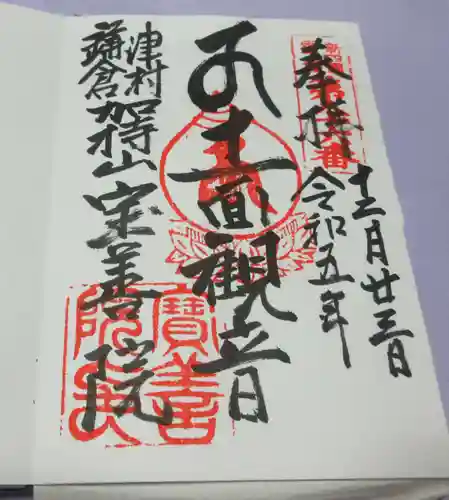 奉拝
令和五年
十二月廿三日
十一面観音
津村
鎌倉
加持山宝善院
寶善